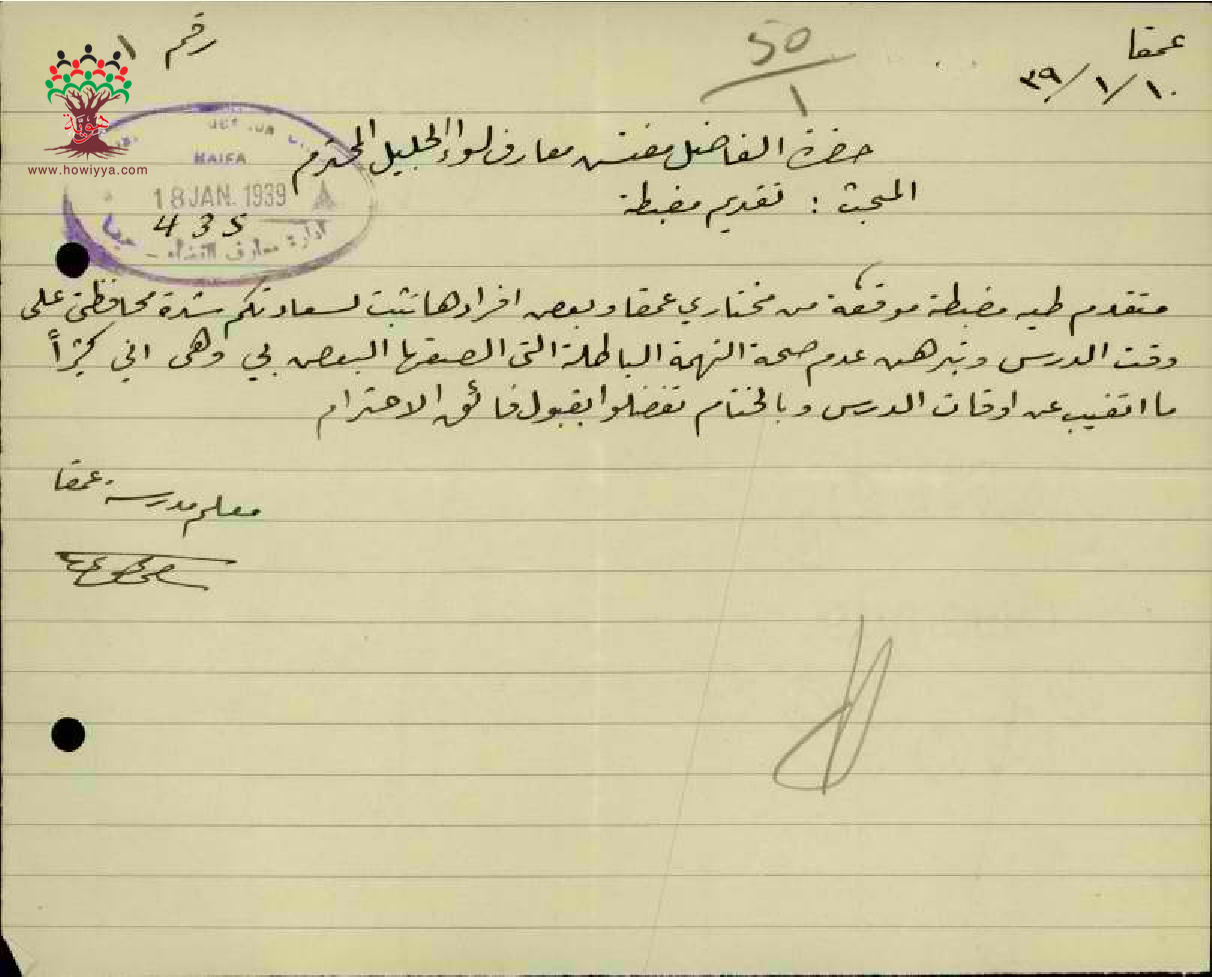 عمقا
١٠/١/٣٩
50
١
رقم ١
هوية
www.howiyya.com
HAIFA
18 JAN. 1939
435
ادارة معارف القضاء - حيفا
حضرة الفاضل مفتش معارف لواء الجليل المحترم
المبحث : تقديم مضبطة
متقدم طيه مضبطة موقعة من مختاري عمقا وبعض افرادها تثبت لسعادتكم شدة محافظتي على
وقت الدرس وتبرهن عدم صحة التهمة الباطلة التي الصقها البعض بي وهي اني كثيراً
ما اتغيب عن اوقات الدرس وبالختام تفضلوا بقبول فائق الاحترام
معلم مدرسة عمقا